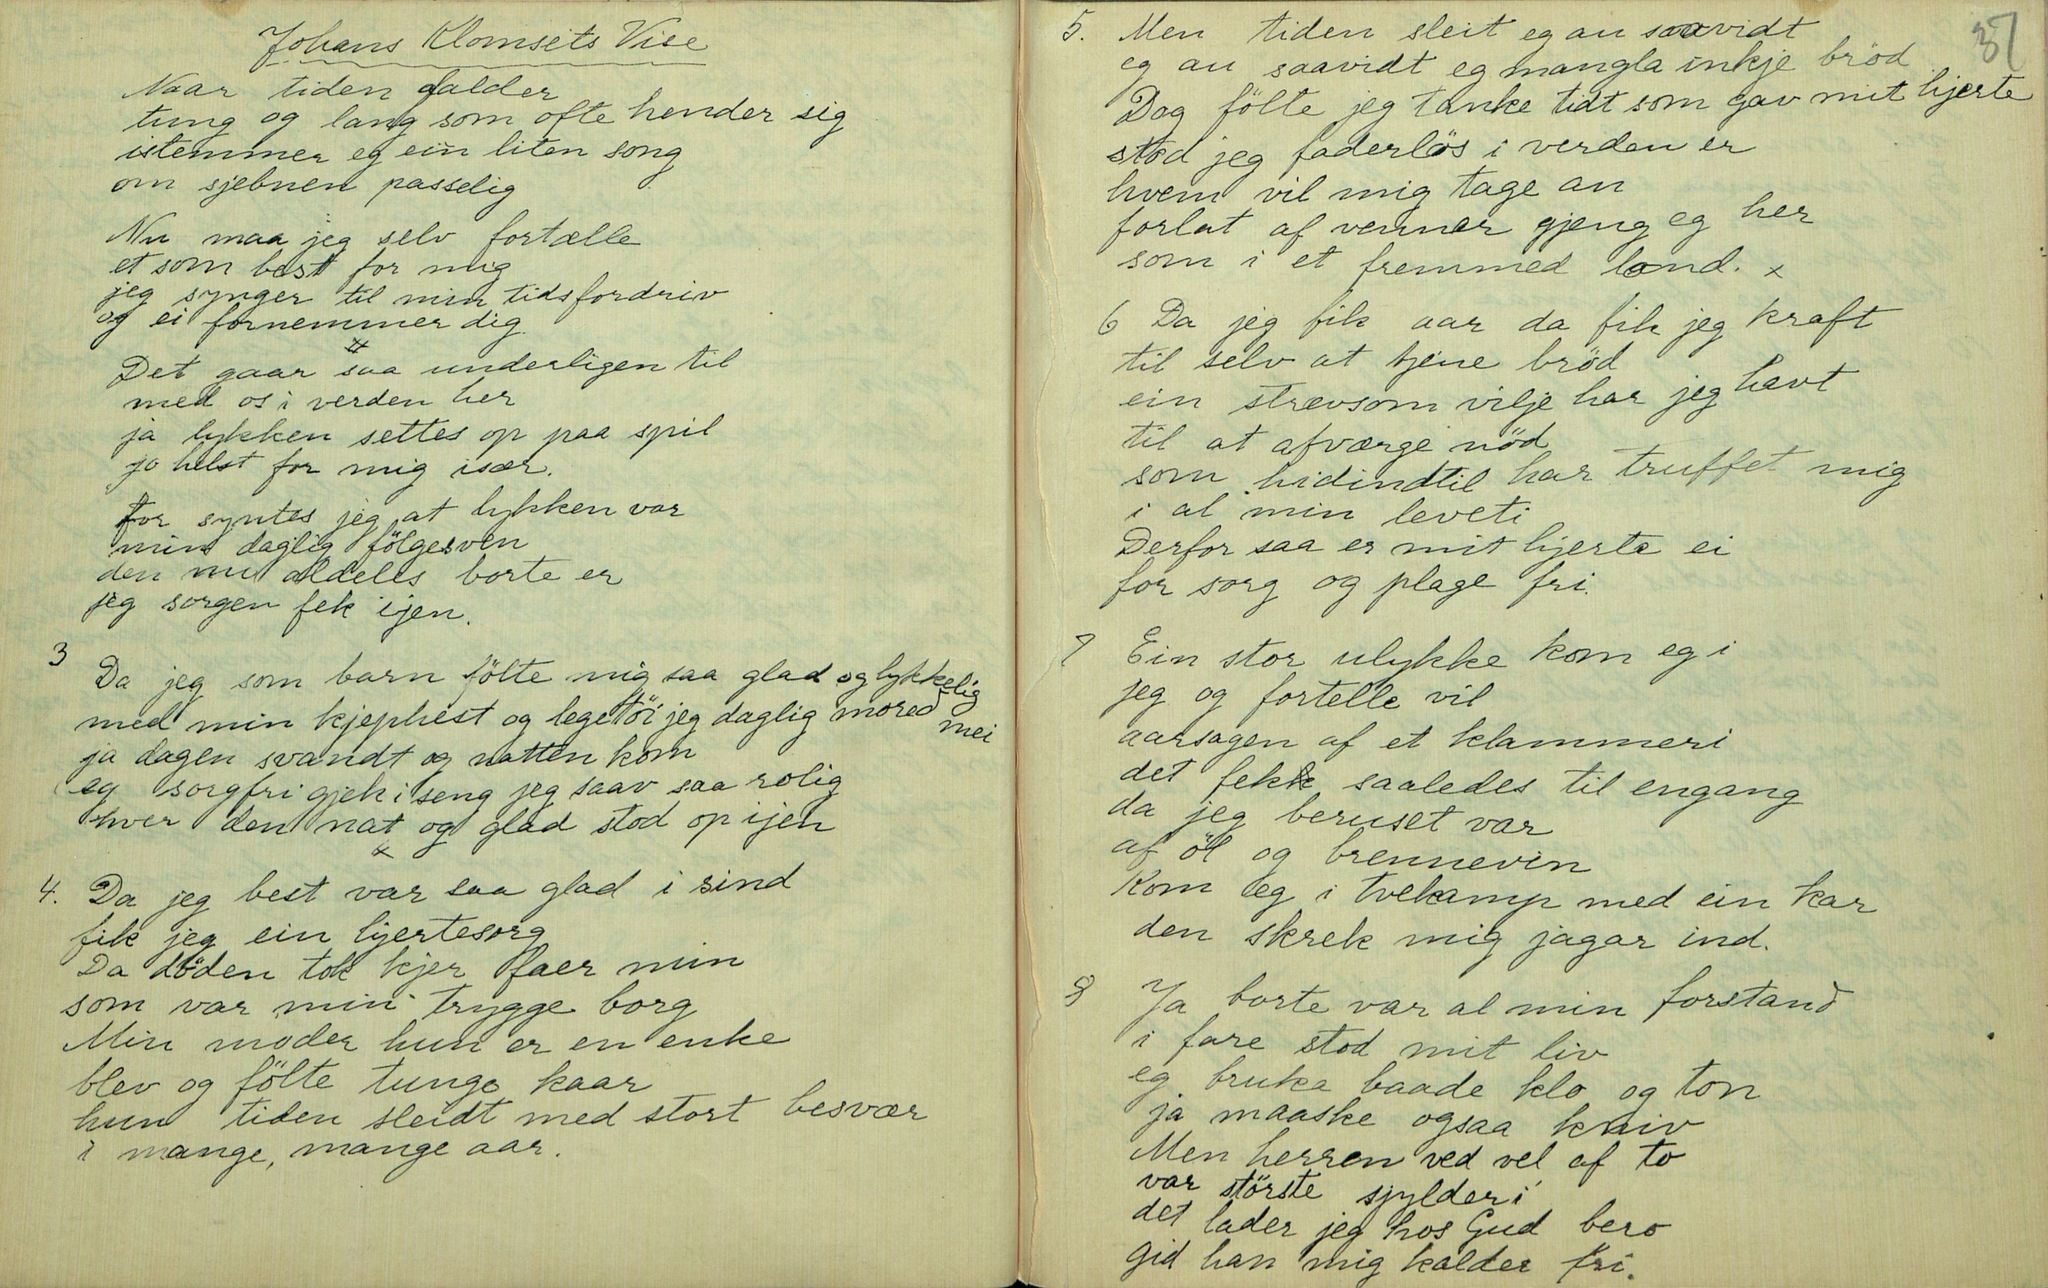 Johans Klomsets Vise
Naar tiden falder
tung og lang som ofte hender sig
istemmer eg ein liten song
om sjebnen passelig
Nu maa jeg selv fortælle
et som best for mig
jeg synger til min tidsfordriv
og ei fornemmer dig.
Det gaar saa underligen til
med os i verden her
ja lykken settes op paa spil
jo helst for mig især.
for syntes jeg at lykken var
min daglig fölgesven
den nu aldeles borte er
jeg sorgen fek ijen.
3
Da jeg som barn fölte mig saa glad og lykkelig
med min kjephest og legetöi jeg daglig mored mei
ja dagen svandt og natten kom
eg sorgfri gjek i seng jeg saav saa rolig
hver den nat og glad stod op ijen
x
4. Da jeg best var saa glad i sind
fik jeg ein hjertesorg
Da döden tok kjer faer min
som var min trygge borg
Min moder hun er en enke
blev og fölte tunge kaar
hun tiden sleidt med stort besvær
i mange, mange aar.
37
5. Men tiden sleit eg au saavidt
eg au saavidt eg mangla inkje bröd
Dog fölte jeg tanke tidt som gav mit hjerte
stöd jeg faderlös i verden er
hvem vil mig tage an
forlat af venner gjeng eg her
som i et fremmed land. x
6 Da jeg fik aar da fik jeg kraft
til selv at tjene bröd
ein strævsom vilje har jeg havt
til at afværge nöd
som hidindtil har truffet mig
i al min leveti
Derfor saa er mit hjerte ei
for sorg og plage fri.
7 Ein stor ulykke kom eg i
jeg og fortelle vil
aarsagen af et klammeri
det fekk saaledes til engang
da jeg beruset var
af öl og brennevin
Kom eg i tvekamp med ein kar
den skrek mig jagar ind.
8 Ja borte var al min forstand
i fare stod mit liv
eg bruka baade klo og ton
ja maaske ogsaa kniv
Men herren ved vel af to
var störste sjylder i
det lader jeg hos Gud bero
gid han mig kalder fri.